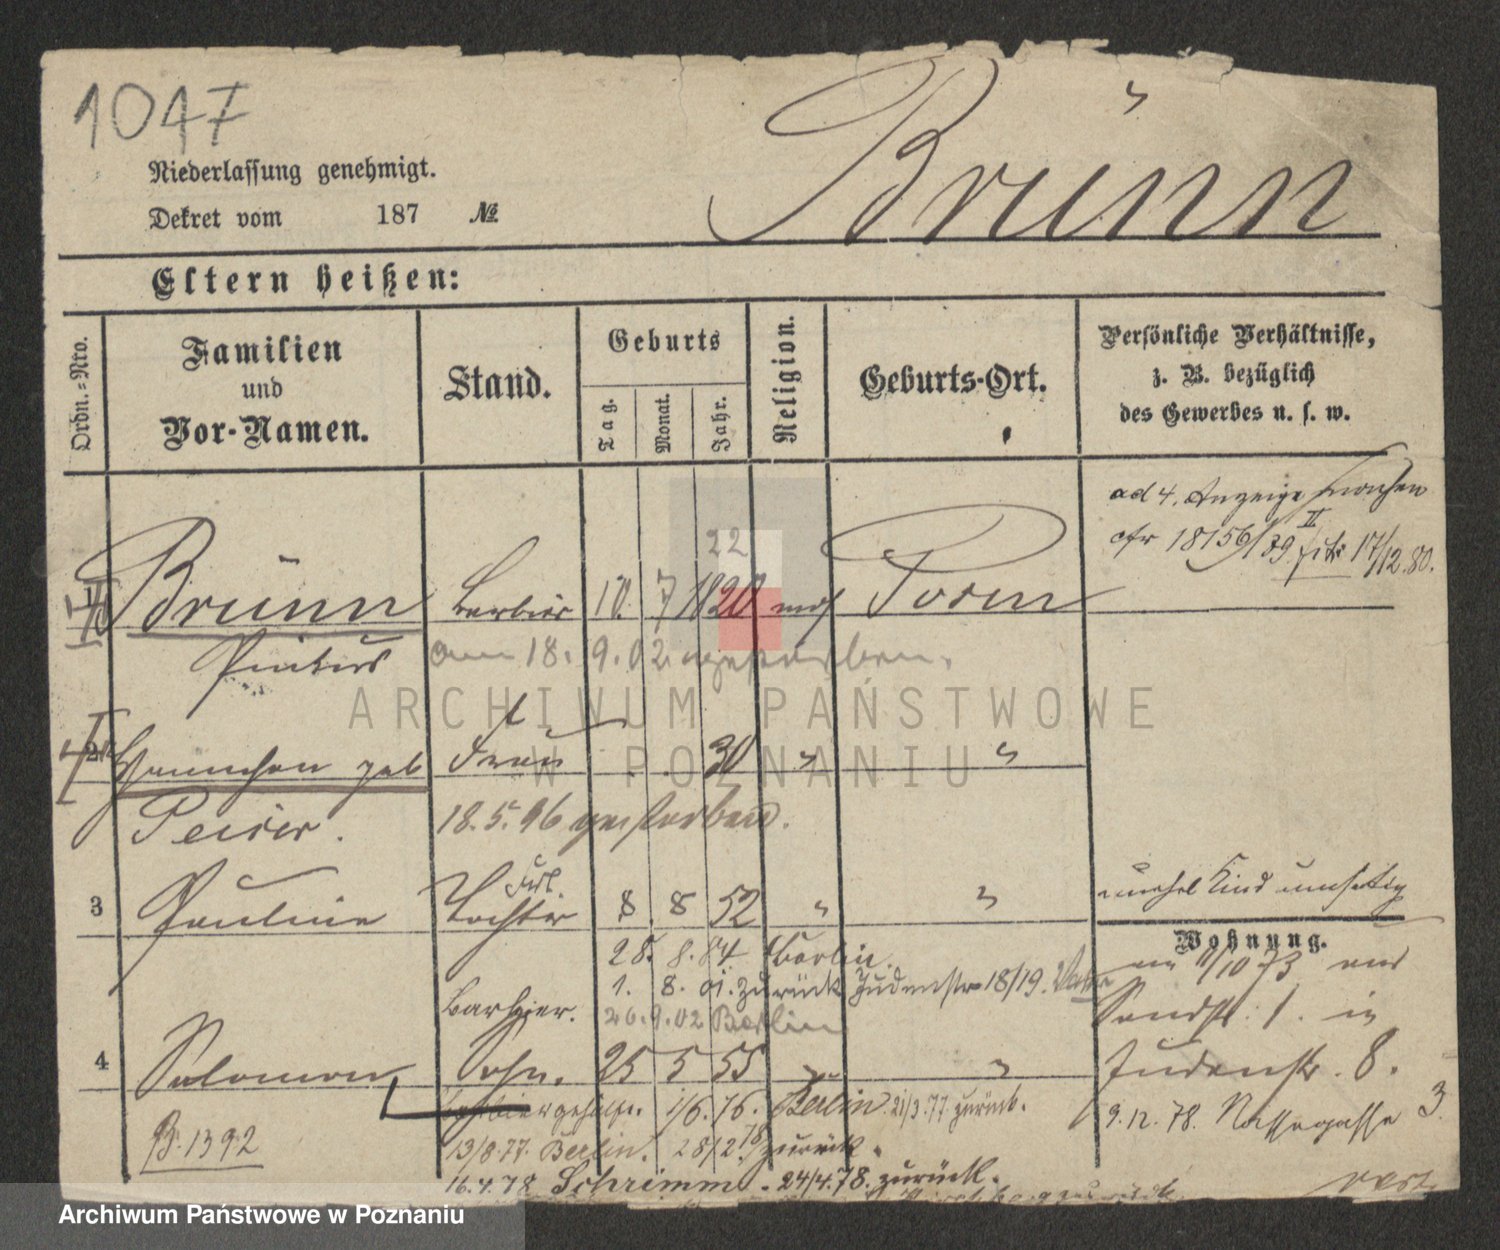 1047
Brünn
Niederlassung genehmigt.
Dekret vom 187 №
Eltern heißen:
Ordn.-Nro.
Familien und Vor-Namen.
Stand.
Geburts
Tag.
Monat.
Jahr.
Religion.
Geburts-Ort.
Persönliche Verhältnisse,
z. B. bezüglich
des Gewerbes u. s. w.
ad 4. Anzeige
cfr 18156/89 II 17/12.80.
22
1 Brünn Barbier 10. 7 1820 mos Posen
Pinkus am 18. 9. 02 gestorben.
2 Hannchen geb Frau 30 " "
Peiser. 18.5.96 gestorben.
Frl.
3 Pauline Tochter 8. 8 52 " "
Kind
Wohnung.
28. 8. 84 Berlin
am 1/10 73 von
1. 8. 01. zurück Judenstr 18/19.
Barbier. 20.9.02 Berlin
Sandstr. 1. in
4 Salomon Sohn. 25 5 55 " "
Judenstr. 8.
Barbiergehülfe. 1/6.76. Berlin 21/3.77 zurück.
9.12.78. Nassegasse 3.
B. 1392
13/8.77. Berlin. 28/2.78 zurück.
16.4.78 Schrimm. 24/4.78. zurück.
vert.
ARCHIWUM PAŃSTWOWE
W POZNANIU
Archiwum Państwowe w Poznaniu